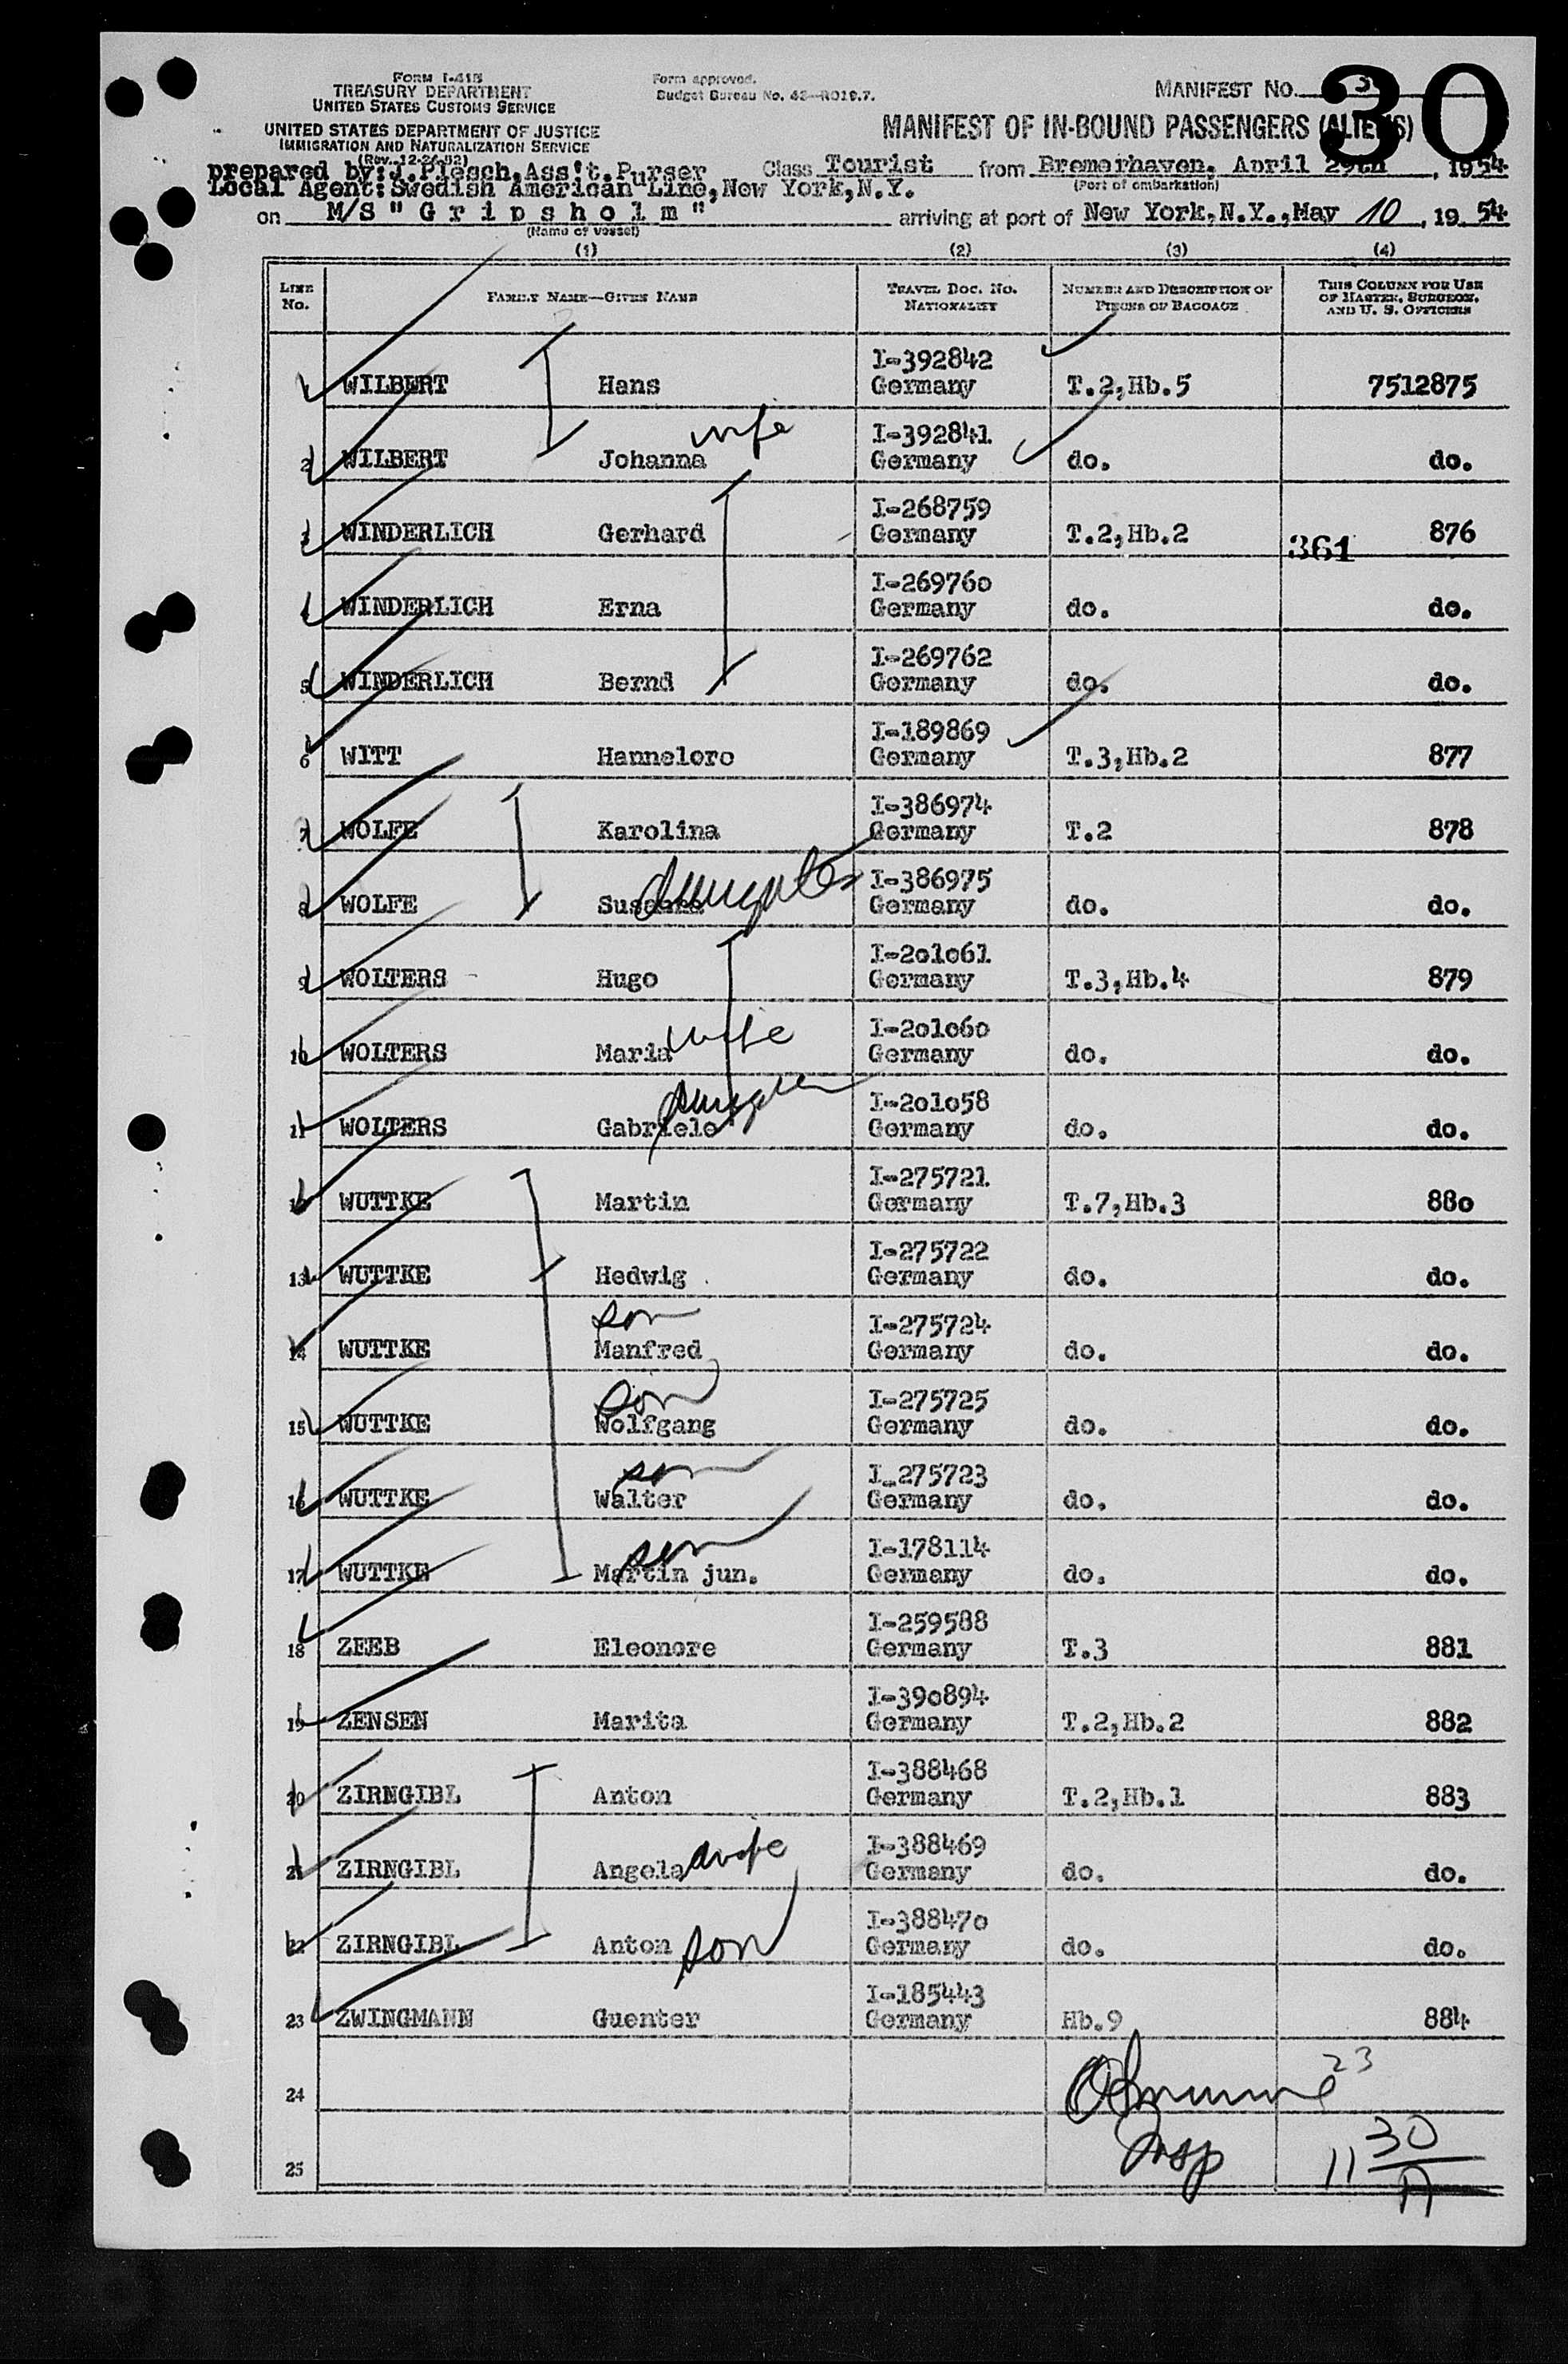 FORM I-415
TREASURY DEPARTMENT
UNITED STATES CUSTOMS SERVICE
UNITED STATES DEPARTMENT OF JUSTICE
IMMIGRATION AND NATURALIZATION SERVICE
(Rev. 12-26-52)
Form approved.
Budget Bureau No. 43-R019.7.
MANIFEST NO. 3
30
MANIFEST OF IN-BOUND PASSENGERS (ALIENS)
prepared by: J. Plesch, Ass't. Purser Class Tourist from Bremerhaven, April 29th, 1954
(Port of embarkation)
Local Agent: Swedish American Line, New York, N.Y.
on M/S "Gripsholm" arriving at port of New York, N.Y., May 10, 1954
(Name of vessel)
(1) (2) (3) (4)
LINE No. FAMILY NAME—GIVEN NAME TRAVEL DOC. NO. NATIONALITY NUMBER AND DESCRIPTION OF PIECES OF BAGGAGE THIS COLUMN FOR USE OF MASTER, SURGEON, AND U. S. OFFICERS
I-392842
1 WILBERT Hans Germany T.2,Hb.5 7512875
wife I-392841
2 WILBERT Johanna Germany do. do.
I-268759
3 WINDERLICH Gerhard Germany T.2,Hb.2 361 876
I-269760
4 WINDERLICH Erna Germany do. do.
I-269762
5 WINDERLICH Bernd Germany do. do.
I-189869
6 WITT Hannelore Germany T.3,Hb.2 877
I-386974
7 WOLFE Karolina Germany T.2 878
daughter I-386975
8 WOLFE Susanne Germany do. do.
I-201061
9 WOLTERS Hugo Germany T.3,Hb.4 879
wife I-201060
10 WOLTERS Maria Germany do. do.
daughter I-201058
11 WOLTERS Gabriele Germany do. do.
I-275721
12 WUTTKE Martin Germany T.7,Hb.3 880
I-275722
13 WUTTKE Hedwig Germany do. do.
son I-275724
14 WUTTKE Manfred Germany do. do.
son I-275725
15 WUTTKE Wolfgang Germany do. do.
son I-275723
16 WUTTKE Walter Germany do. do.
son I-178114
17 WUTTKE Martin jun. Germany do. do.
I-259588
18 ZEEB Eleonore Germany T.3 881
I-390894
19 ZENSEN Marita Germany T.2,Hb.2 882
I-388468
20 ZIRNGIBL Anton Germany T.2,Hb.1 883
I-388469
21 ZIRNGIBL Angela wife Germany do. do.
I-388470
22 ZIRNGIBL Anton son Germany do. do.
I-185443
23 ZWINGMANN Guenter Germany Hb.9 884
24 23
Insp 11 30
25 A